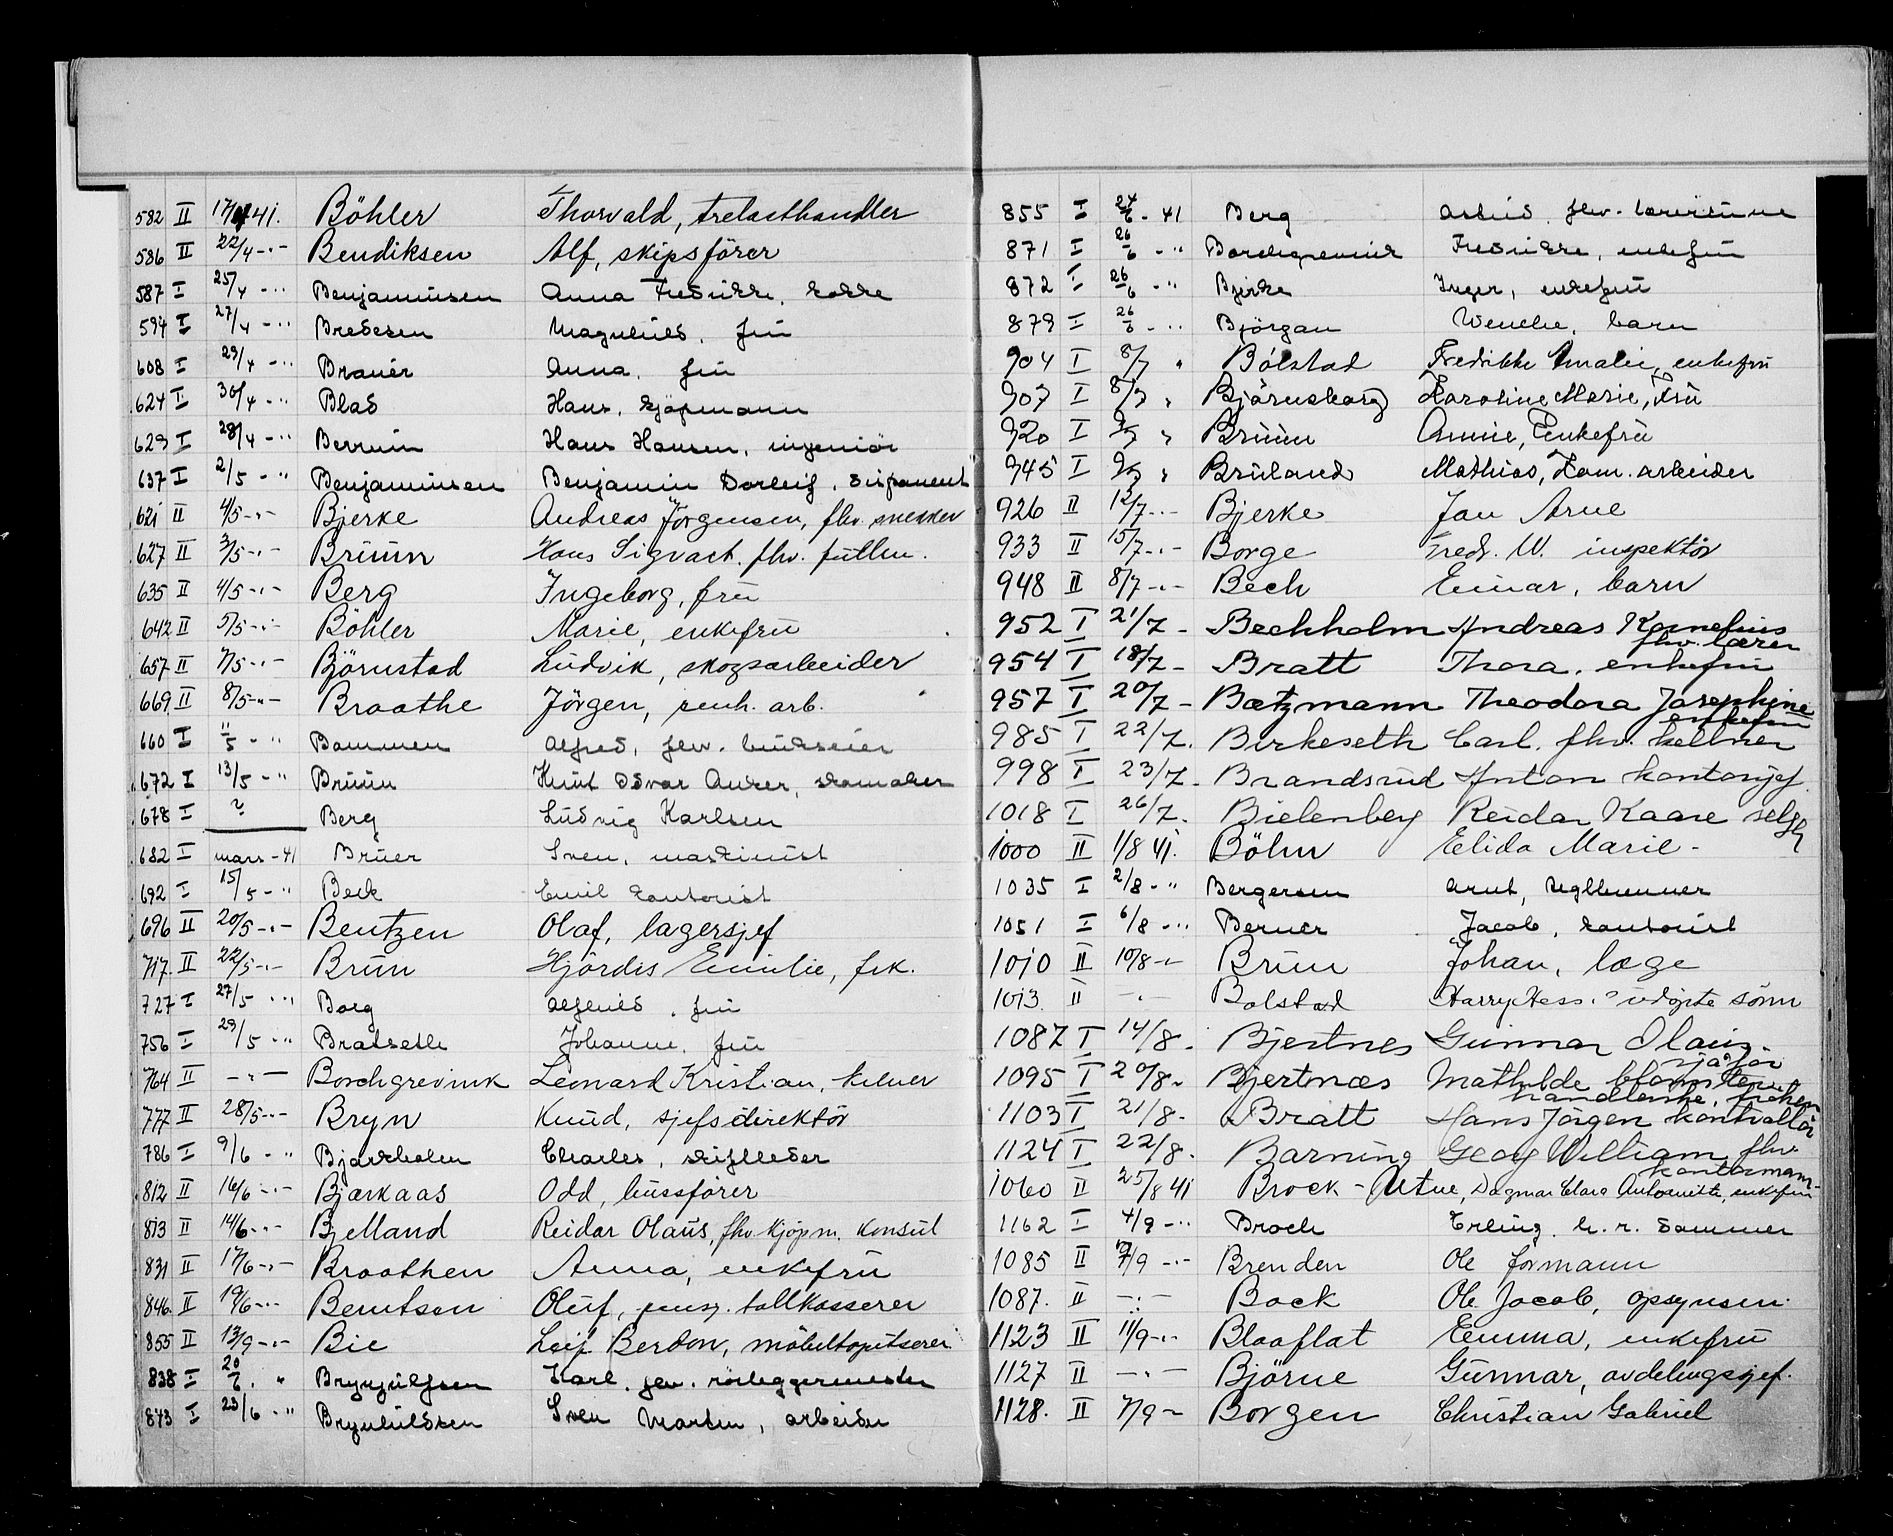 582 II 17/4 41. Böhler Thorvald, trelasthandler
586 II 22/4 -"- Bendiksen Alf, skipsförer
587 I 25/4 - " Benjaminsen Anna Fredrikke, kokke
594 I 27/4 - " Bredesen Magnhild, frú
608 I 29/4 - " Brauer Anna, frú
624 I 30/4 - " Blad Hans, kjöpmann
629 I 28/4 - " Berrum Hans Hansen, ingeniör
637 I 2/5 - " Benjaminsen Benjamin Dorleif, disponent
621 II 4/5 -"- Bjerke Andreas Jörgensen, fhv. snekker
627 II 3/5 -"- Brúún Hans Sigvart. fhv.
635 II 4/5 -"- Berg Ingeborg, frú
642 II 5/5 -"- Böhler Marie, enkefrú
657 II 7/5 -"- Björnstad Lúdvik, skogsarbeider
669 II 8/5 -"- Braathe Jörgen, renh. arb.
660 I 11/5 - " Bammen Alfred, fhv.
672 I 13/5 - " Brúún Knút Edvar Anker, skomaker
678 I ? Berg Lúdvig Karlsen
682 I mars - 41 Brúer Sven, maskinist
692 I 15/5 - " Beck Emil kontorist
696 II 20/5 -"- Bentzen Olaf, lagersjef
717. II 22/5 -"- Brún Hjördis Emilie, frk.
727 I 27/5 - " Borg Alfhild, frú
756 I 29/5 - " Bratseth Johanne, frú
764 II - " - Borchgrevink Leonard Kristian, kelner
777 II 28/5 -"- Bryn Knúd, sjefsdirektör
786 I 9/6 - " Bjarkholm Charles, skiftleder
812 II 16/6 -"- Bjærkaas Odd, bússförer
813 II 14/6 -"- Bjelland Reidar Olaús, fhv. kjöpm. konsúl
831 II 17/6 -"- Braathen Anna, enkefrú
846. II 19/6 -"- Berntsen Olúf, pens. tollkasserer
855 II 13/9 -"- Bie Leif Berdon, möbeltapetserer
838 I 20/6. " Brynjúlfsen Karl, fhv. rörleggermester
843 I 23/6 - " Brynhildsen Sven Martin, arbeider
855 I 24/6 - 41 Berg Astrid, fhv. lærerinne
871 I 26/6 - " Borchgrevink Fredrikke, enkefrú
872 I 26/6 - " Bjerke Inger, enkefrú
879 I 26/6 - " Björgan Wenche, barn
904 I 8/7 " Bölstad Fredikke Amalie, enkefrú
907 I 8/7 " Björnsborg Karoline Marie, Frú
920 I 9/7 " Brúún Annie, Enkefrú
945 I 9/7 " Brúland Mathias, Kom. arbeider
926 II 12/7 -"- Bjerke Jan Arne
933 II 15/7 -"- Borge Fredr. W. inspektör
948 II 8/7 -"- Bech Einar, barn
952 I 21/7 - Bechholm Andreas Kornelius
fhv. lærer
954 I 18/7 - Bratt Thora, enkefrú
957 I 20/7 - Bætzmann Theodora Josephine
enkefrú
985 I 22/7. Birkeseth Carl. fhv. kellner
998 I 23/7. Brandsrúd Anton kontorsjef
1018 I 26/7. Bielenberg Reidar Kaare
1000 II 1/8 41. Böhn Elida Marie -
1035 I 2/8 - " Bergersen Arnt, teglbrenner
1051 I 6/8 - " Berner Jacob, kontorist
1010 II 10/8 -"- Brún Johan, læge
1013. II - " - Bolstad Harry Hess. údöpte sönn
1087 I 14/8 - Bjertnes Gúnnar Olaús.
sjåför
1095 I 20/8 - Bjertnæs Mathilde blomster
handlerske, fröken
1103 I 21/8 - Bratt Hans Jörgen kontrollör
1124 I 22/8. Barning Georg William fhv.
kontormann
1060 II 25/8 41 Brock - Utne, Dagmar Clara Antoinette, enkefrú
1162 I 4/9 - " Broch Erling h. r. dommer
1085 II 7/9 -"- Brenden Ole formann
1087. II - " - Bock Ole Jacob, opsynsm.
1123 II 11/9 -"- Blaaflat Emma, enkefrú
1127 II - " - Björne Gúnnar, avdelingssjef.
1128. II 7/9 - Borgen Christian Gabriel